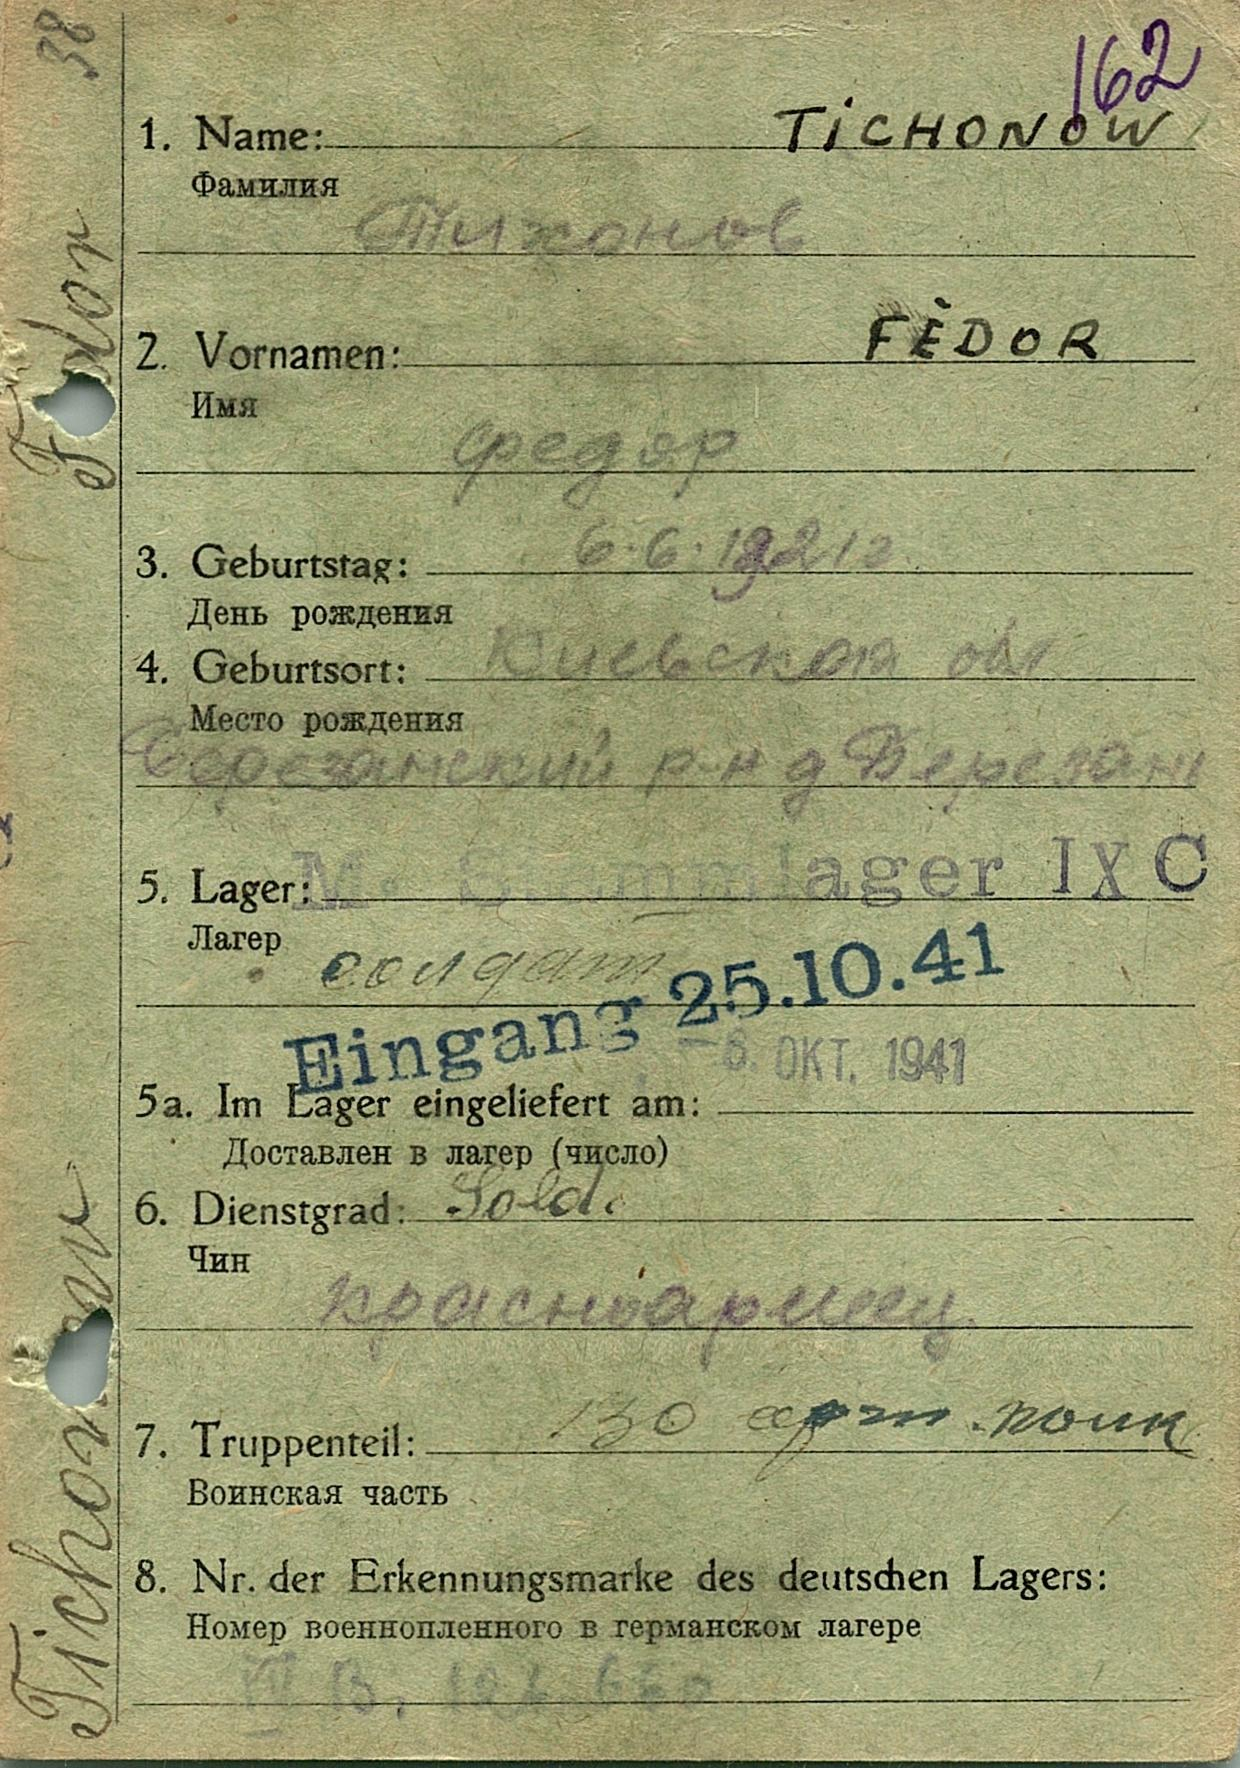 38
162
1. Name: TiCHONOW
Фамилия
Тихонов
2. Vornamen: FÈDOR
Имя
Федор
3. Geburtstag: 6.6.1921 г
День рождения
4. Geburtsort: Киевская обл
Место рождения
Березанский р-н д Березань
5. Lager: M. Stammlager IX C
Лагер
солдат
Eingang 25.10.41
OKT. 1941
5a. Im Lager eingeliefert am:
Доставлен в лагер (число)
6. Dienstgrad: Sold.
Чин
красноармеец.
7. Truppenteil: 130 арт. полк
Воинская часть
8. Nr. der Erkennungsmarke des deutschen Lagers:
Номер военнопленного в германском лагере
Tichonow
Fedor